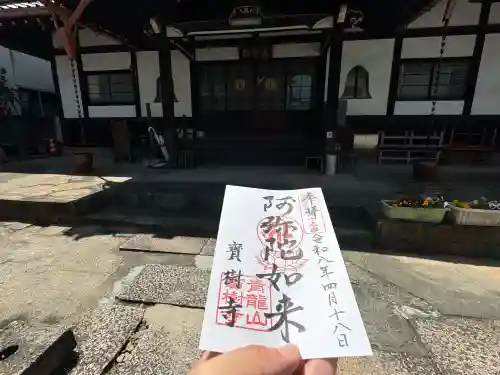 奉拝
令和八年四月十八日
阿弥陀如来
寳樹寺
青龍山